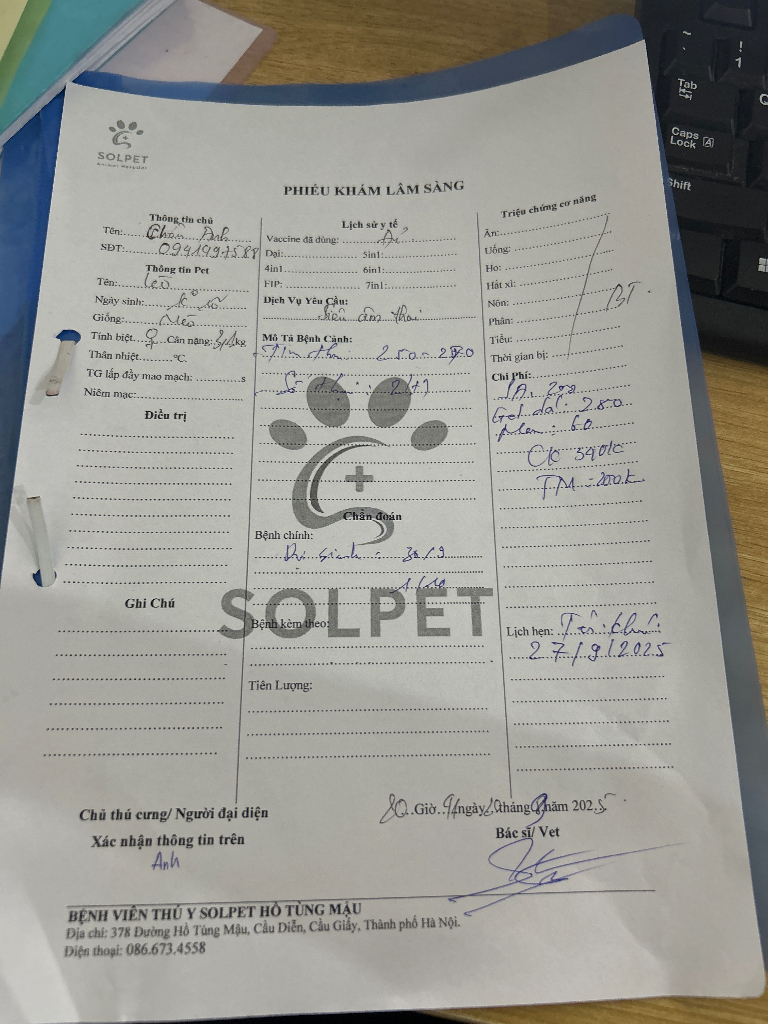 SOLPET
Animal Hospital
PHIẾU KHÁM LÂM SÀNG
Thông tin chủ
Tên: Châu Anh
SĐT: 0941997588
Thông tin Pet
Tên: Leo
Ngày sinh:
Giống: Mèo
Tính biệt: ♀ Cân nặng: kg
Thân nhiệt °C.
TG lấp đầy mao mạch: s
Niêm mạc:
Điều trị
Ghi Chú
Lịch sử y tế
Vaccine đã dùng:
Dại: 5in1:
4in1 6in1:
FIP: 7in1:
Dịch Vụ Yêu Cầu:
Siêu âm thai
Mô Tả Bệnh Cảnh:
Tim thai: 250-270
Số thai: 2(+1)
Chẩn đoán
Bệnh chính:
Dự sinh: 30/9
1/10
SOLPET
Bệnh kèm theo:
Tiên Lượng:
Triệu chứng cơ năng
Ăn:
Uống:
Ho:
Hắt xì:
Nôn:
Phân:
Tiểu:
Thời gian bị:
BT.
Chi Phí:
SA: 200
Gel dd: 280
plan: 60
CK 340k
TM - 200k
Lịch hẹn: Tái khám
27/9/2025
Chủ thú cưng/ Người đại diện
Xác nhận thông tin trên
Anh
Giờ ngày tháng năm 2025
Bác sĩ/ Vet
BỆNH VIỆN THÚ Y SOLPET HỒ TÙNG MẬU
Địa chỉ: 378 Đường Hồ Tùng Mậu, Cầu Diễn, Cầu Giấy, Thành phố Hà Nội.
Điện thoại: 086.673.4558
~
!
1
Tab
Q
Caps Lock A
Shift